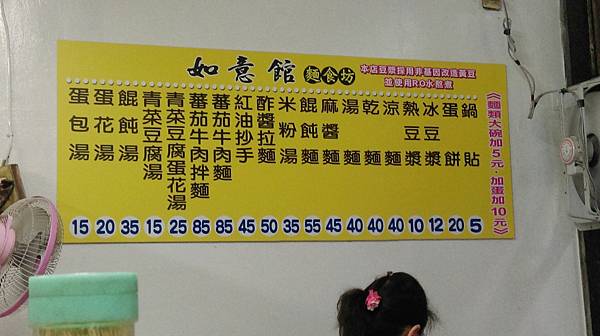 如意館 麵食坊
本店豆漿採用非基因改造黃豆
並使用RO水熬煮
《麵類大碗加5元・加蛋加10元》
鍋貼 5
蛋餅 20
冰豆漿 12
熱豆漿 10
涼麵 40
乾麵 40
湯麵 40
麻醬麵 45
餛飩麵 55
米粉湯 35
酢醬拉麵 50
紅油抄手 45
蕃茄牛肉麵 85
蕃茄牛肉拌麵 85
青菜豆腐蛋花湯 25
青菜豆腐湯 15
餛飩湯 35
蛋花湯 20
蛋包湯 15